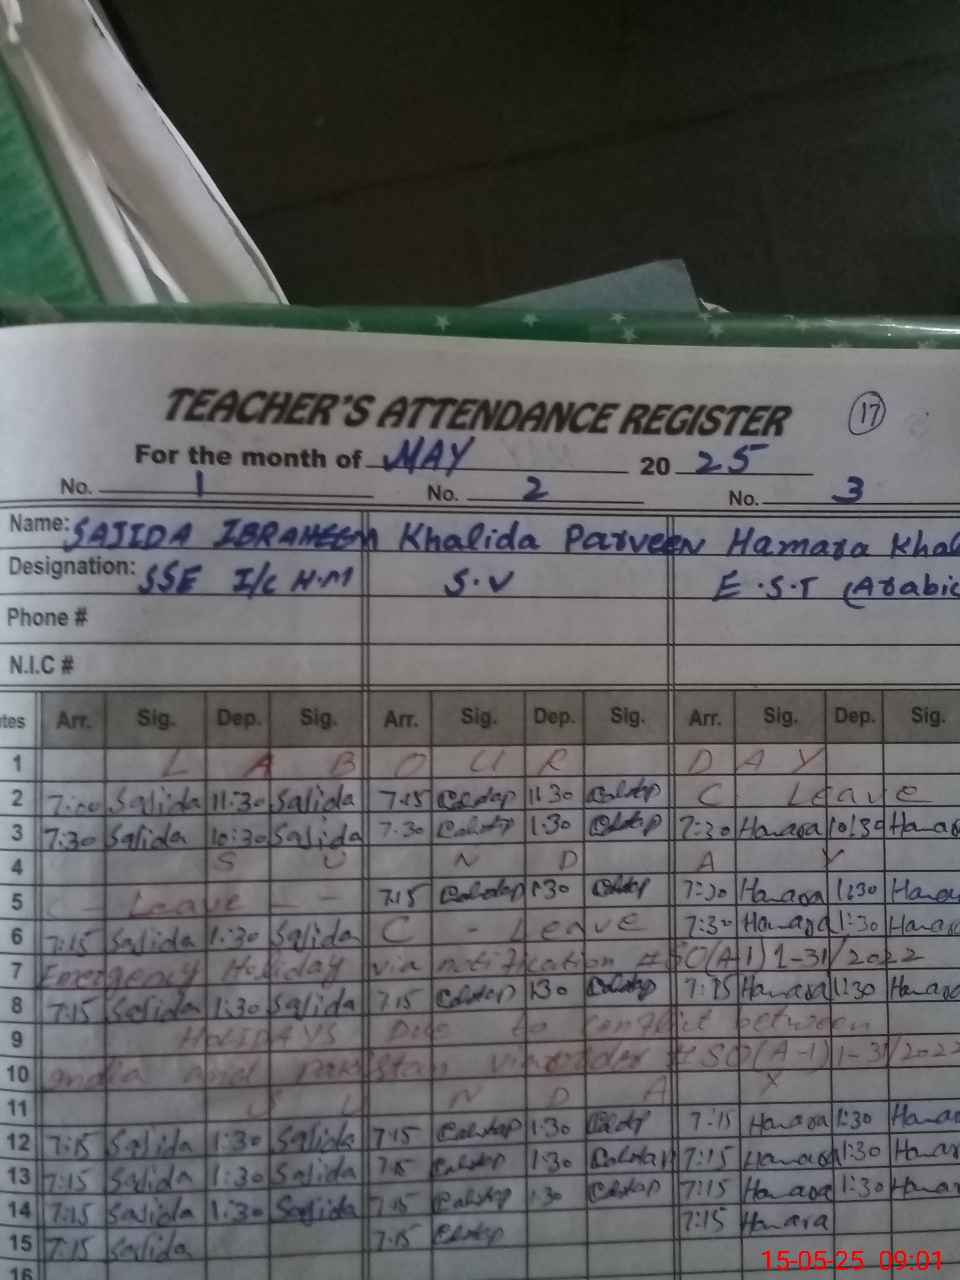 TEACHER'S ATTENDANCE REGISTER 17
For the month of MAY 20 25
No. 1 No. 2 No. 3
Name: SAJIDA IBRAHEEM Khalida Parveen Hamara Khal
Designation: SSE I/C H.M S.V E.S.T (Arabic
Phone #
N.I.C #
tes Arr. Sig. Dep. Sig. Arr. Sig. Dep. Sig. Arr. Sig. Dep. Sig.
1 L A B O U R D A Y
2 7:00 Sajida 11:30 Sajida 7:15 11:30 C Leave
3 7:30 Sajida 10:30 Sajida 7:30 1:30 7:30 Hamara 10:30 Hamar
4 S U N D A Y
5 Leave 7:15 1:30 7:30 Hamara 1:30 Hama
6 7:15 Sajida 1:30 Sajida C - Leave 7:30 Hamara 1:30 Hama
7 Emergency Holiday via notification # SO(A-1) 1-31/2022
8 7:15 Sajida 1:30 Sajida 7:15 1:30 7:15 Hamara 1:30 Hama
9 HOLIDAYS Due to conflict between
10 India and Pakistan via order # SO(A-1) 1-31/2022
11 S U N D A Y
12 7:15 Sajida 1:30 Sajida 7:15 1:30 7:15 Hamara 1:30 Hama
13 7:15 Sajida 1:30 Sajida 7:15 1:30 7:15 Hamara 1:30 Hamar
14 7:15 Sajida 1:30 Sajida 7:15 1:30 7:15 Hamara 1:30 Hamar
15 7:15 Sajida 7:15 7:15 Hamara
16
15-05-25 09:01